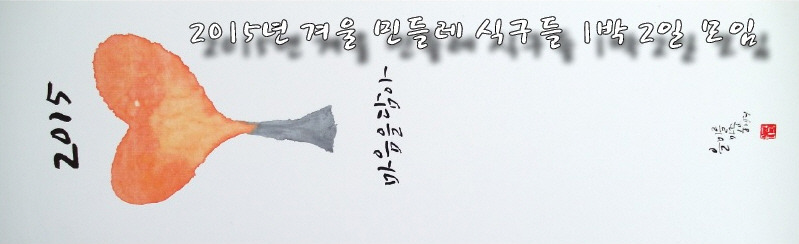 2015년 겨울 민들레 식구들 1박 2일 모임
2015
마음을 담아